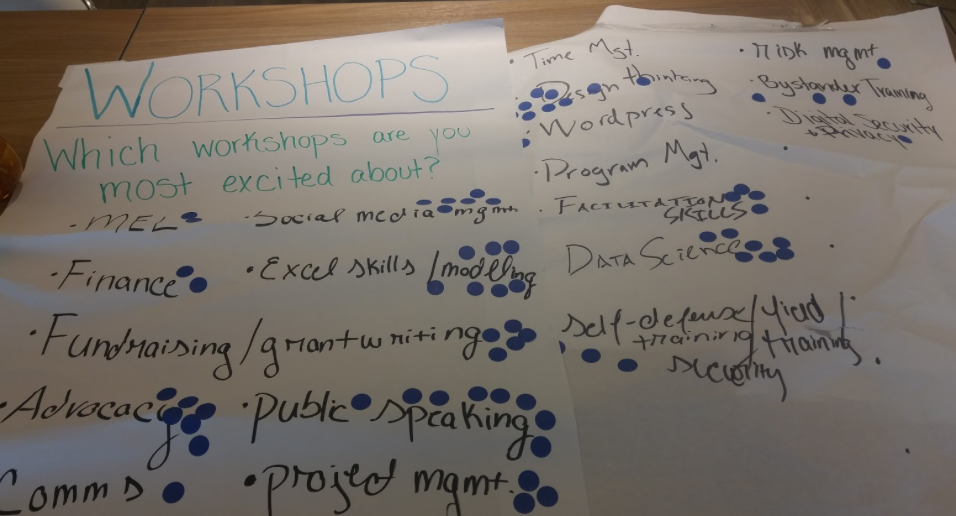 WORKSHOPS
Which workshops are you
most excited about?
· MEL
· Social media mgmt
· Finance
· Excel skills / modelling
· Fundraising / grantwriting
· Advocacy
· Public speaking
Comms
· Project mgmt.
· Time Mgt.
· Design thinking
· Wordpress
· Program Mgt.
· FACILITATION
SKILLS
DATA SCIENCE
self-defense/yield/
training training
security
· Risk mgmt
· Bystander Training
· Digital Security
+ Privacy